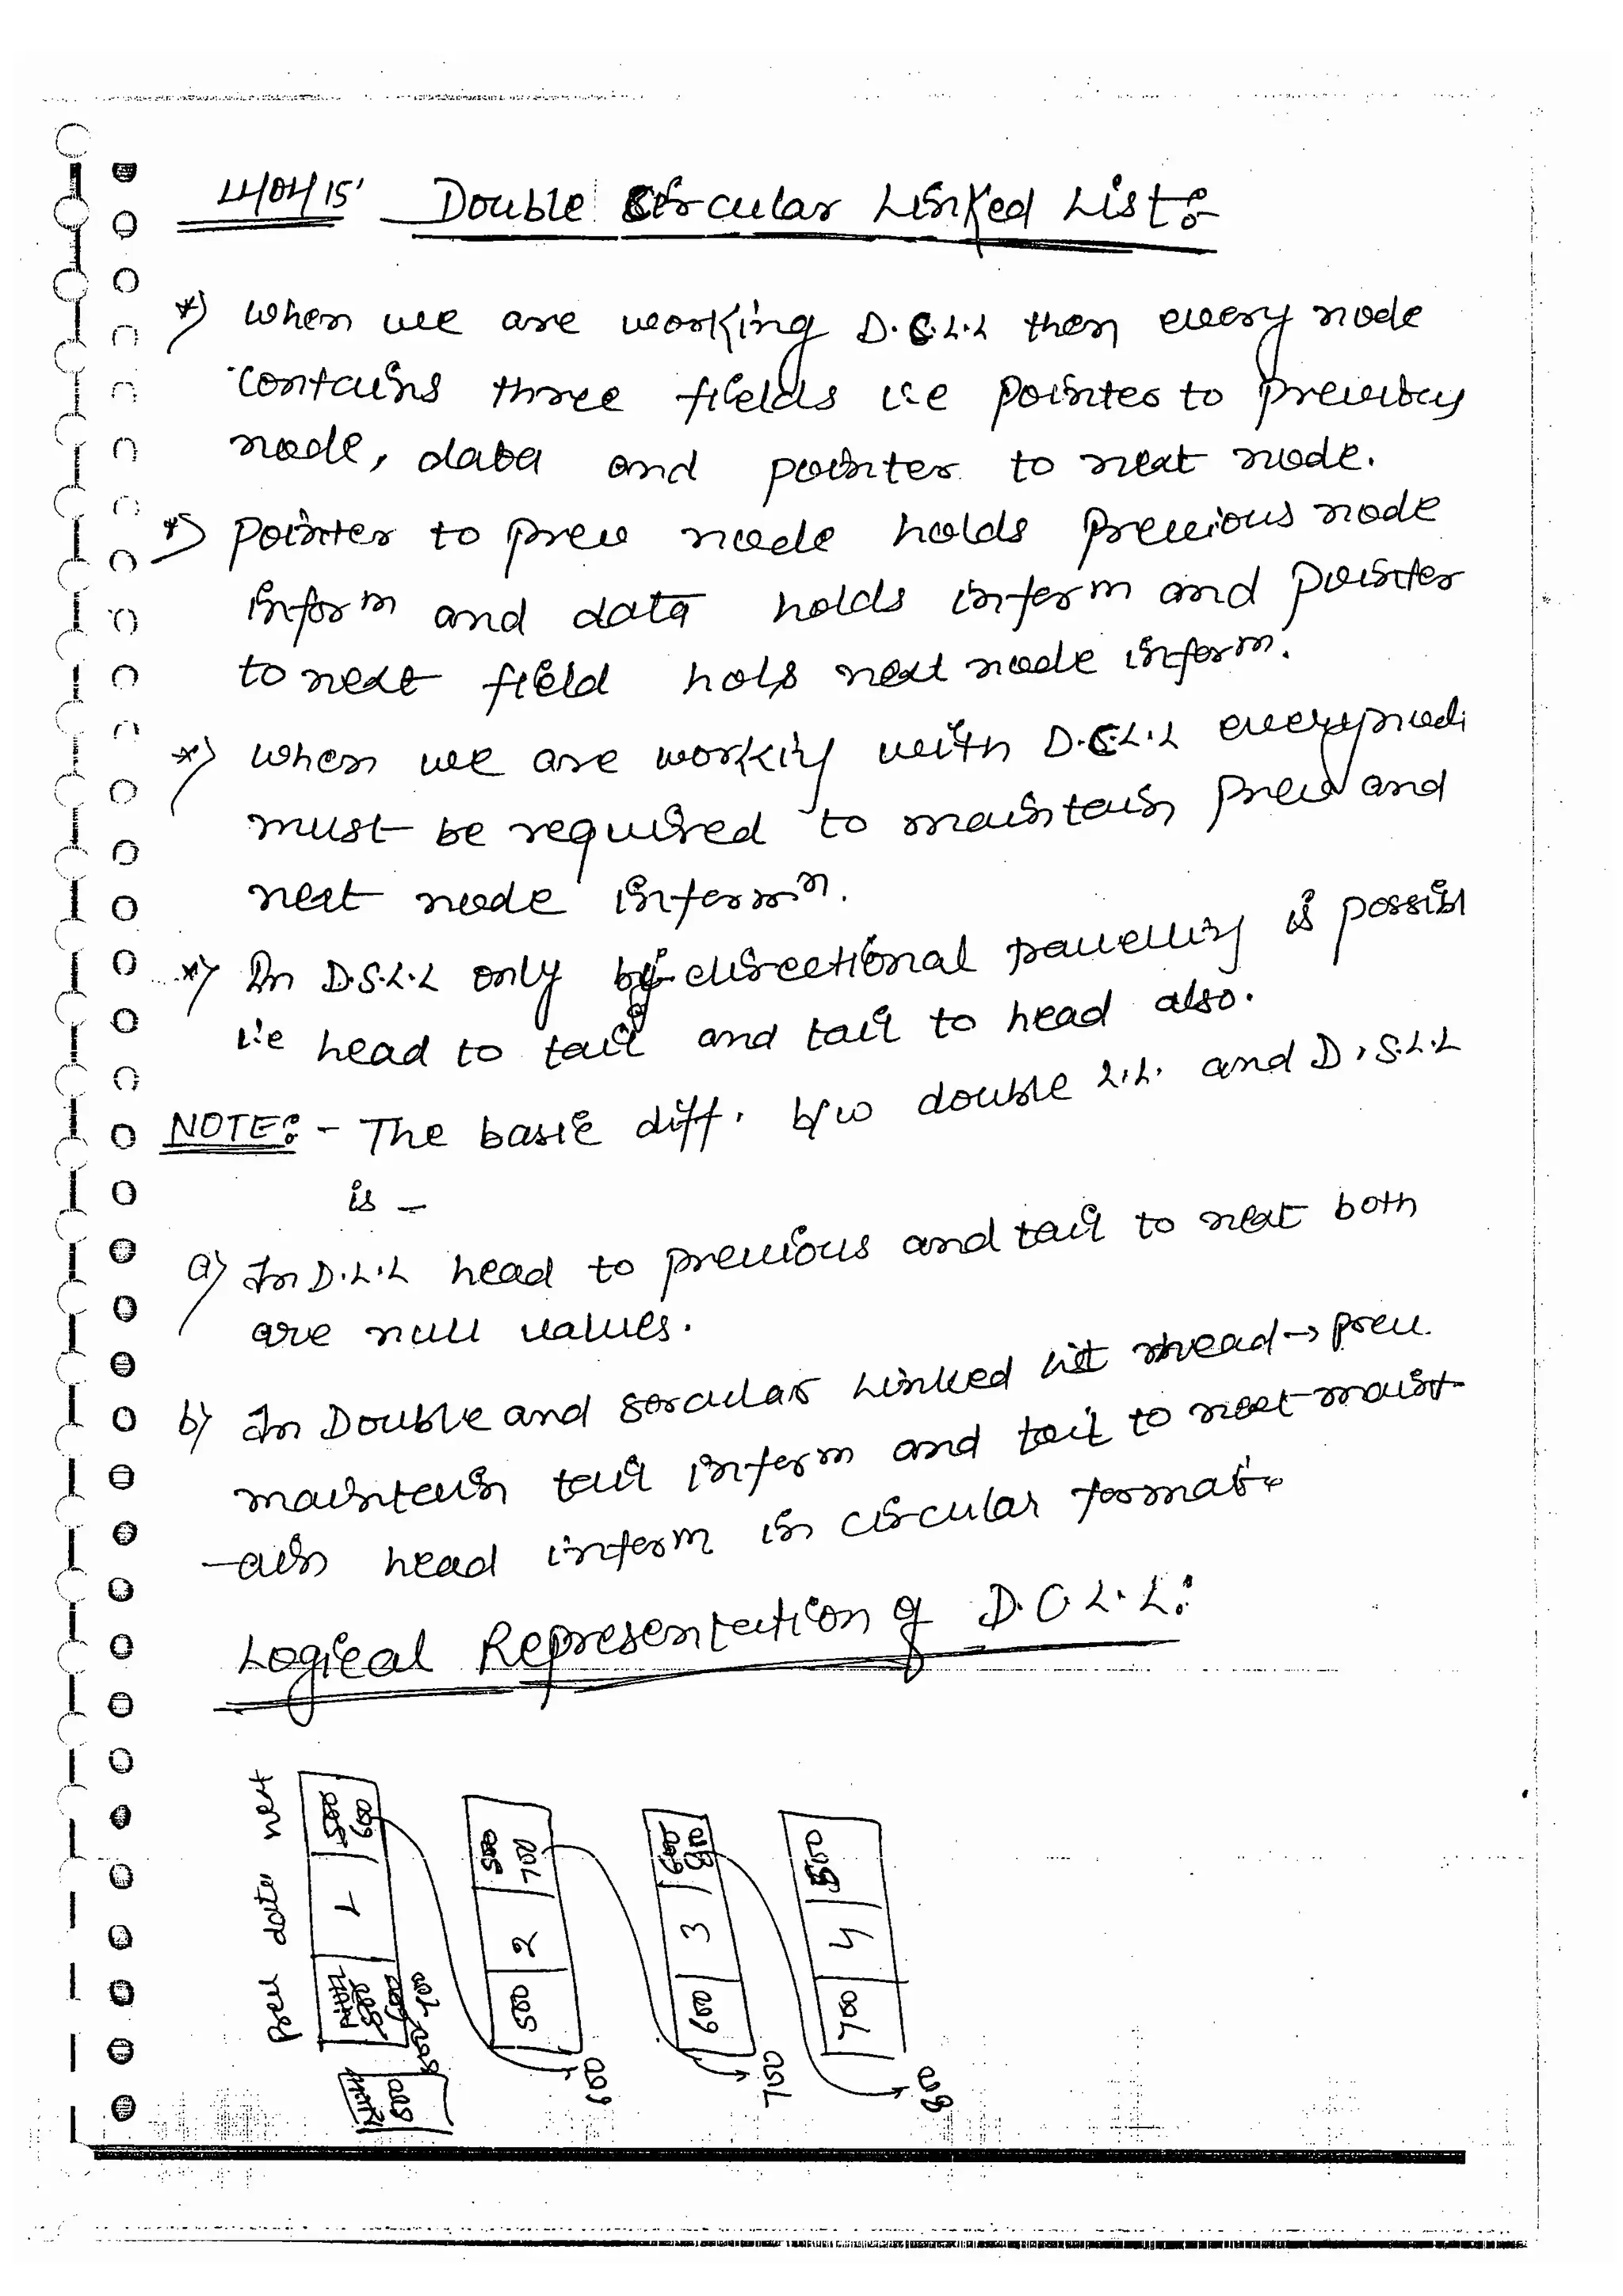 4/04/15' Double Circular Linked List:
*) when we are working D.C.L.L then every node
contains three fields i.e pointer to previous
node, data and pointer to next node.
*) pointer to prev node holds previous node
inform and data holds inform and pointer
to next field hols next node inform.
*) when we are working with D.C.L.L every node
must be required to maintain prev and
next node inform.
*) In D.S.L.L only bi-directional travelling is possibl
i.e head to tail and tail to head also.
NOTE: - The basic diff. b/w double L.L. and D.S.L.L
is -
a) In D.L.L head to previous and tail to next both
are null values.
b) In Double and sircular Linked list head → prev.
maintain tail inform and tail to next maint-
-ain head inform in circular format.
Logical Representation of D.C.L.L:
prev data next
500 600
1
NULL 500 600 700 800
500 700
2
500
600 800
3
600
500
4
700
NULL 500
600
700
800